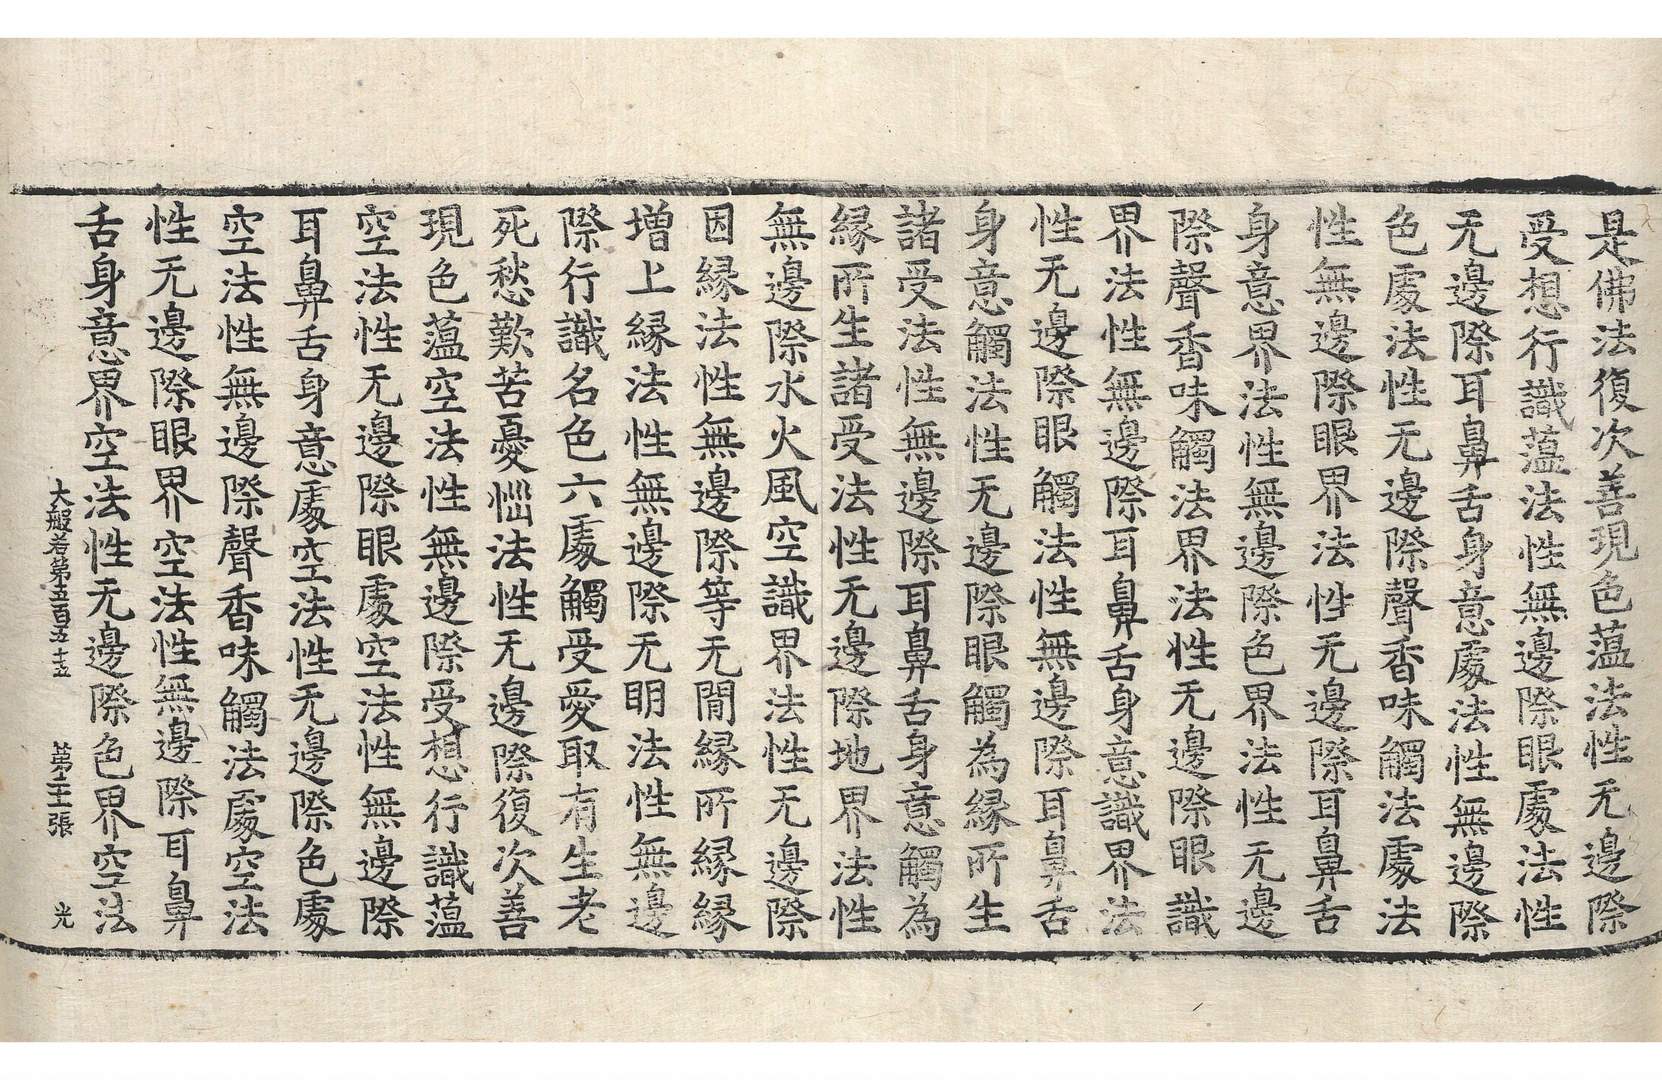 是佛法復次善現色蘊法性无邊際
受想行識蘊法性無邊際眼處法性
无邊際耳鼻舌身意處法性無邊際
色處法性无邊際聲香味觸法處法
性無邊際眼界法性无邊際耳鼻舌
身意界法性無邊際色界法性无邊
際聲香味觸法界法性无邊際眼識
界法性無邊際耳鼻舌身意識界法
性无邊際眼觸法性無邊際耳鼻舌
身意觸法性无邊際眼觸為緣所生
諸受法性無邊際耳鼻舌身意觸為
緣所生諸受法性无邊際地界法性
無邊際水火風空識界法性无邊際
因緣法性無邊際等无閒緣所緣緣
增上緣法性無邊際无明法性無邊
際行識名色六處觸受愛取有生老
死愁歎苦憂惱法性无邊際復次善
現色蘊空法性無邊際受想行識蘊
空法性无邊際眼處空法性無邊際
耳鼻舌身意處空法性无邊際色處
空法性無邊際聲香味觸法處空法
性无邊際眼界空法性無邊際耳鼻
舌身意界空法性无邊際色界空法
大般若第五百五十五 第張 光